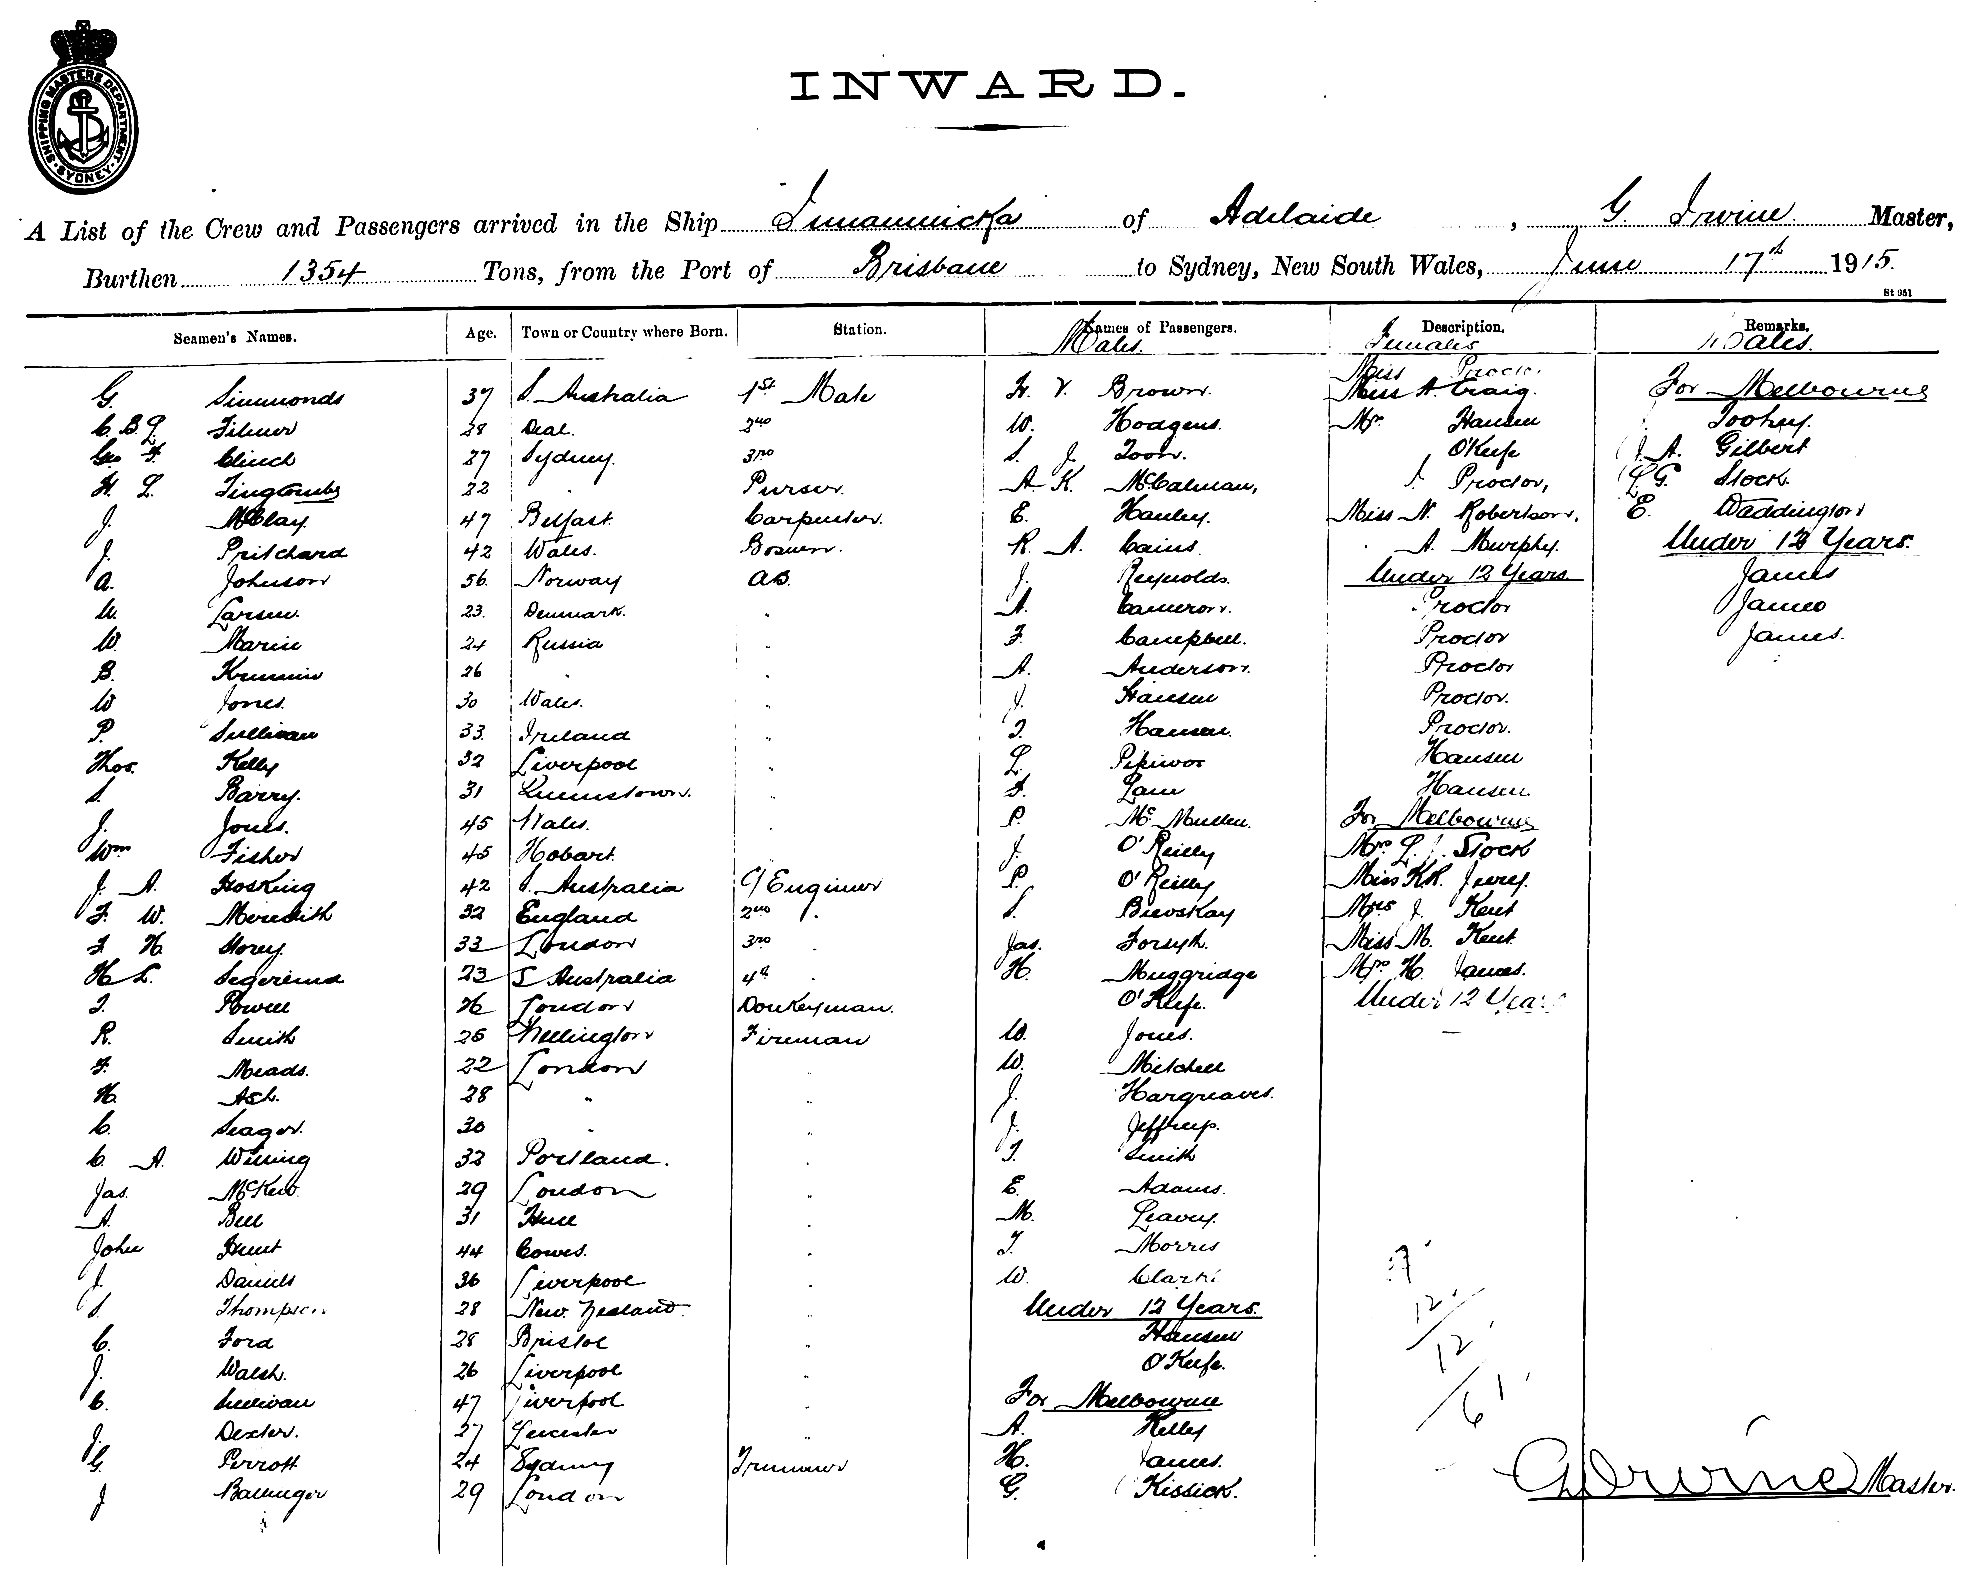 SHIPPING MASTERS DEPARTMENT · SYDNEY ·
INWARD.
A List of the Crew and Passengers arrived in the Ship of Adelaide, G. Irvine Master,
Burthen 1354 Tons, from the Port of Brisbane to Sydney, New South Wales, June 17th 1915.
St 951
Seamen's Names. Age. Town or Country where Born. Station. Names of Passengers. Description. Remarks.
Males. Females Males.
Miss Proctor
G. Simmonds 37 S. Australia 1st Mate H. V. Brown. Miss A. Craig. For Melbourne
C. B. L. Filmer 28 Deal. 2nd W. Hodgens. Mrs Hansen Toohey.
Geo F. Clinch 27 Sydney. 3rd S. J. Toon. O'Keefe J. A. Gilbert
H. L. Tingcombe 22 " Purser. A. K. McCalman, J. Proctor, L. G. Stock.
J. McClay 47 Belfast. Carpenter. E. Hanley. Miss N. Robertson. E. Waddington
J. Pritchard 42 Wales. Bosun. R. A. Cains A. Murphy. Under 12 Years.
A. Johnson 56. Norway AB. J. Reynolds. Under 12 Years. James
W. Larsen. 23. Denmark. " A. Cameron. Proctor James
W. Marin 24 Russia " F. Campbell. Proctor James.
B. 26 " " A. Anderson. Proctor
W Jones. 30 Wales. " J. Hansen Proctor.
P. Sullivan 33. Ireland " T. Hansen. Proctor.
Thos. Kelly 32 Liverpool " L. Hansen
S. Barry. 31 Queenstown. " F. Lane Hansen.
J. Jones. 45 Wales. " P. McMullen. For Melbourne
Wm Fisher 45 Hobart. J. O'Reilly Mrs L. J. Stock
J. A. Hosking 42 S. Australia C/Engineer P. O'Reilly Miss K.
F. W. Meredith 32 England 2nd " S. Mrs J. Kent
F. H. Storey. 33 London 3rd Jas. Forsyth. Miss M. Kent.
H L. 23 S Australia 4th " H. Muggridge Mrs H. James.
T. Powell London Donkeyman. O'Keefe. Under 12 Years
R. Smith 26 Wellington Fireman W. Jones. —
F. Meads. 22 London " W. Mitchell
H. Ash. 28 " " J. Hargreaves.
C. Seager. 30 " " J. Jeffrey.
C. A. Willing 32 Portland. " T. Smith
Jas. 29 London " E. Adams.
A. Bell 31 Hull " M. Leavey.
John Hunt 44 Cowes. " T. Morris
J. Daniels 36 Liverpool " W. Clark
S Thompson 28 New Zealand. " Under 12 Years.
C. Ford 28 Bristol " Hansen
J. Walsh. 26 Liverpool " O'Keefe.
C. Sullivan 47 Liverpool " For Melbourne
J. Dexter. 27 Leicester " A. Kelley
G. Perrott 24 Sydney Trimmer H. James.
J Ballinger 29 London G. Kissick.
12
12
6
G Irvine Master.